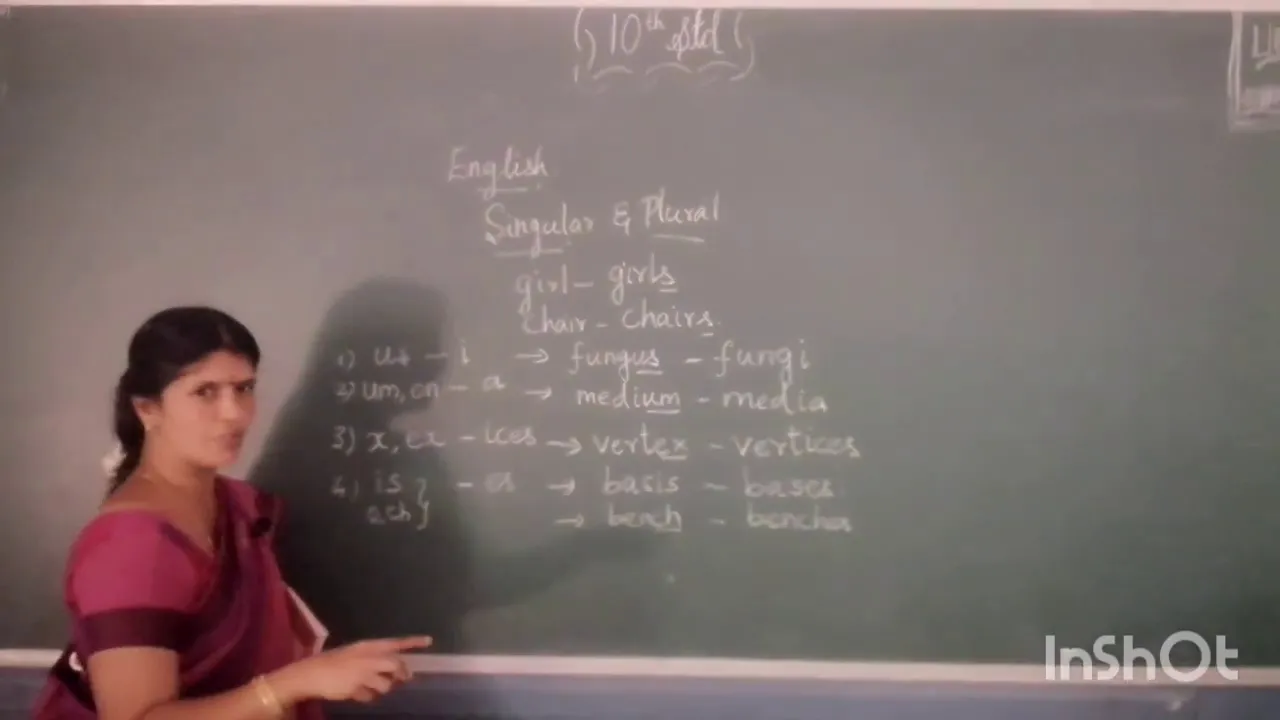 10th Std
English
Singular & Plural
girl - girls
chair - chairs.
1) us - i → fungus - fungi
2) um, on - a → medium - media
3) x, ex - ices → vertex - vertices
4) is } - es → basis - bases
→ bench - benches
InShOt